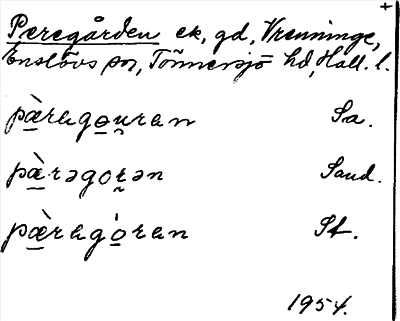 +
Peregården ek, gd, Vrenninge,
Enslövs sn, Tönnersjö hd, Hall. l.
pæ̀ragou̯ran Sa.
pæ̀·rəgorən Sand.
pæ̀ragóran St.
1954.